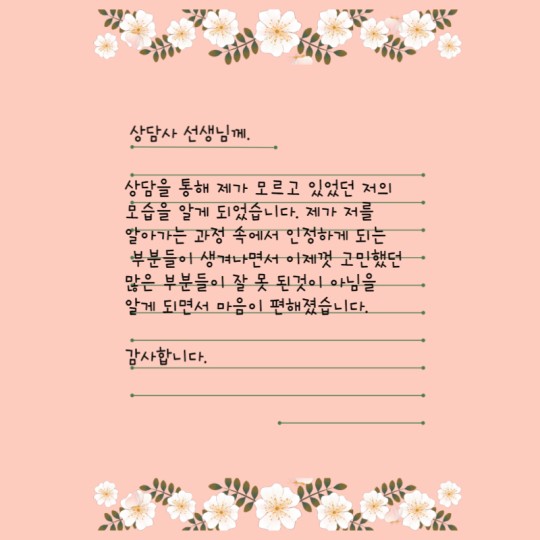 상담사 선생님께.
상담을 통해 제가 모르고 있었던 저의
모습을 알게 되었습니다. 제가 저를
알아가는 과정 속에서 인정하게 되는
부분들이 생겨나면서 이제껏 고민했던
많은 부분들이 잘 못 된것이 아님을
알게 되면서 마음이 편해졌습니다.
감사합니다.